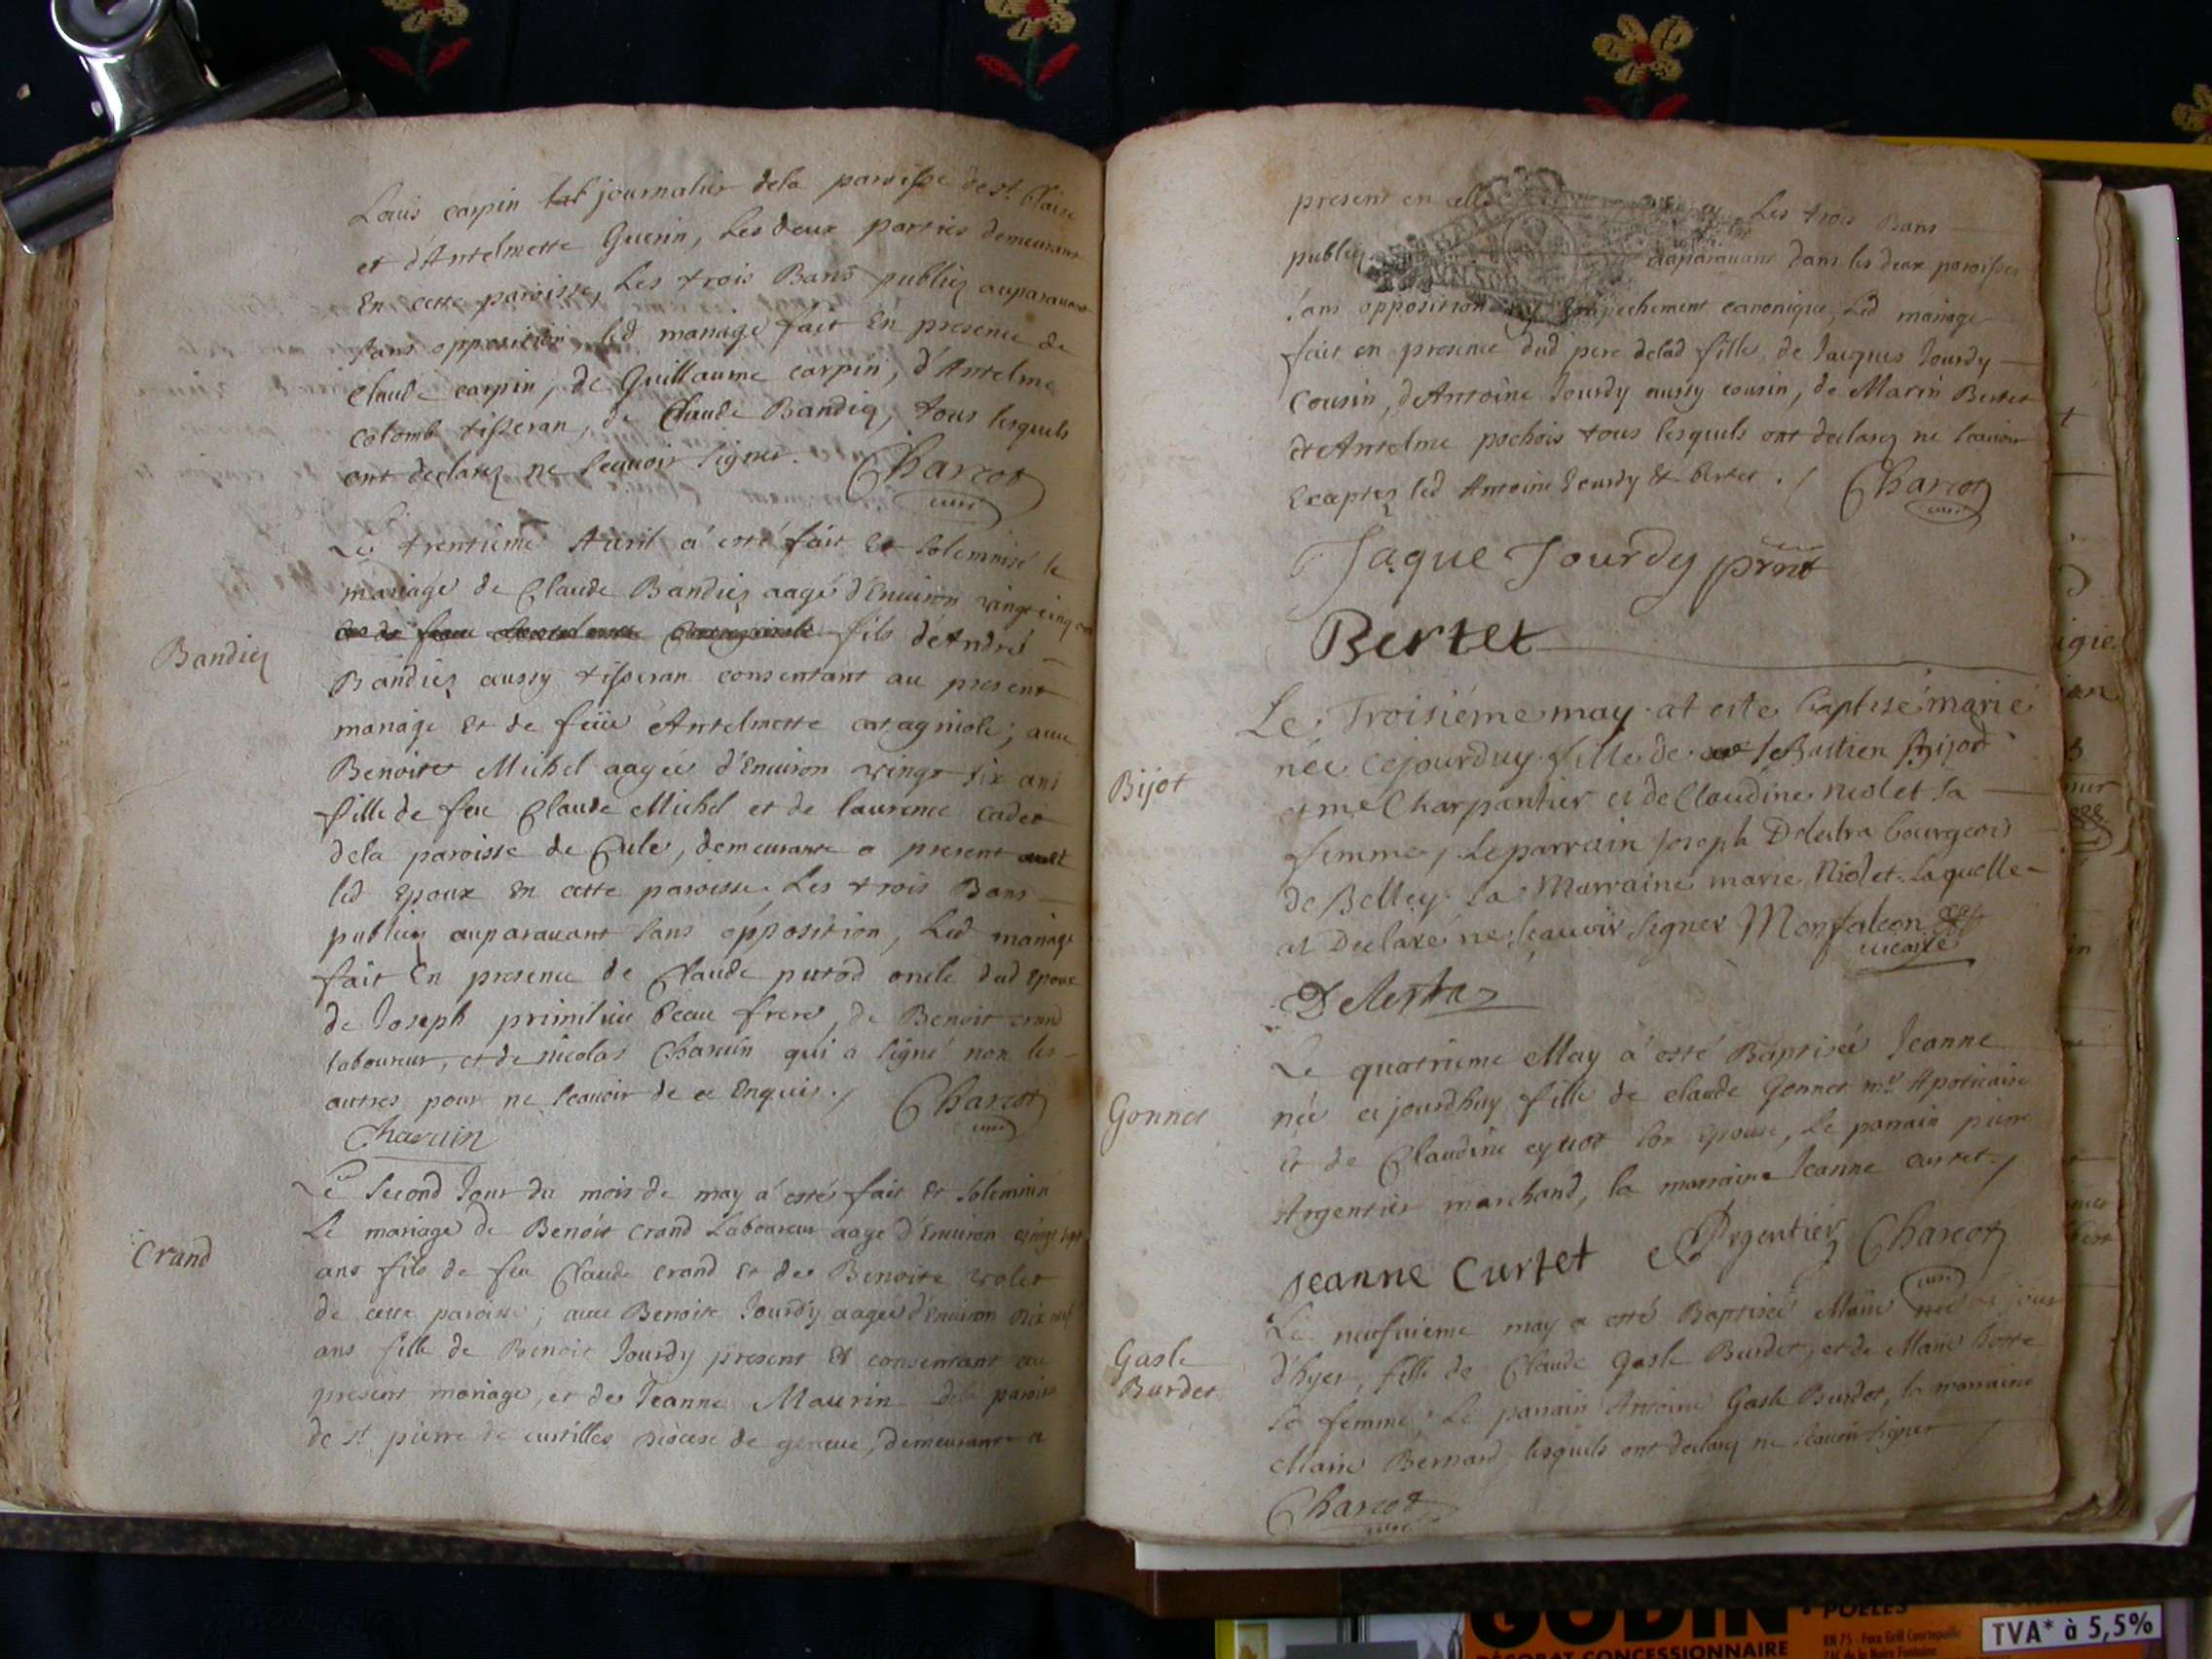 Louis carpin journalier dela paroisse de st. Blaise
et d'Antelmette Guerin, Les deux parties demeurant
En cette paroisse, Les trois Bans publiez auparauant
sans opposition led mariage fait En presence de
Claude carpin, de Guillaume carpin, d'Antelme
colomb tisseran, de Claude Bandiez, tous lesquels
ont declarez ne scauoir signer. Charcot
curé
Le trentieme Auril a esté fait et solemnisé le
mariage de Claude Bandiez aagé d'Enuiron vingt cinq ans
fils d'André
Bandiez
Bandiez aussy tisseran consentant au present
mariage et de feüe Antelmette catagniole; auec
Benoite Michel aagée d'Enuiron vingt six ans
fille de feu Claude Michel et de laurence cadet
dela paroisse de Cule, demeurante a present
led Epoux En cette paroisse. Les trois Bans
publiez auparauant sans opposition, Led mariage
fait En presence de Claude putod oncle dud Epoux
de Joseph primitiu beau frere, de Benoit crand
laboureur, et de nicolas Charuin qui a signé non les
autres pour ne scauoir de ce Enquis. / Charcot
curé
Charuin
Le second Jour du mois de may a esté fait et solemnisé
Le mariage de Benoit crand Laboureur aagé d'Enuiron vingt sept
Crand
ans fils de feu Claude crand et de Benoite volet
de cette paroisse; auec Benoite Jourdy aagée d'Enuiron dix neuf
ans fille de Benoit Jourdy present et consentant au
present mariage, et de Jeanne Maurin dela paroisse
de st. pierre de curtilles diocese de geneue, demeurante a
present en celle Les trois Bans
publiez auparauant dans les deux paroisses
sans opposition ny Empechement canonique, Led mariage
fait en presence dud pere delad fille, de Jacques Jourdy
cousin, d'Antoine Jourdy aussy cousin, de Marin Bertet
et Antelme pochois tous lesquels ont declarez ne scauoir
Exceptez led Antoine Jourdy et bertet. / Charcot
curé
Jaque Jourdy prnt
Bertet
Le Troisiéme may at este baptisé marie
née cejourduy fille de seBastien Bijod
Bijot
et me Charpantier et de Claudine niolet sa
femme, Le parrain Joseph Delestra bourgeois
de Belley. La Marraine marie Niolet. laquelle
at Declaré ne scauoir signer Monfalcon
vicaire
Delestra
Le quatrieme May a esté Baptisée Jeanne
Gonnet
née ce jourdhuy fille de claude Gonnet mre Apoticaire
et de Claudine cyuot son Epouse, Le parrain pierre
Argentier marchand, la marraine Jeanne curtet /
Jeanne Curtet Argentier Charcot
curé
Le neufuieme may a esté Baptisée Marie née le jour
Gasle
Burdet
d'hyer, fille de Claude Gasle Burdet, et de Marie
sa femme; Le parrain Antoine Gasle Burdet, la marraine
Marie Bernard lesquels ont declarez ne scauoir signer
Charcot
curé
GODIN
POELES
DÉCORAT CONCESSIONNAIRE
TVA* à 5,5%